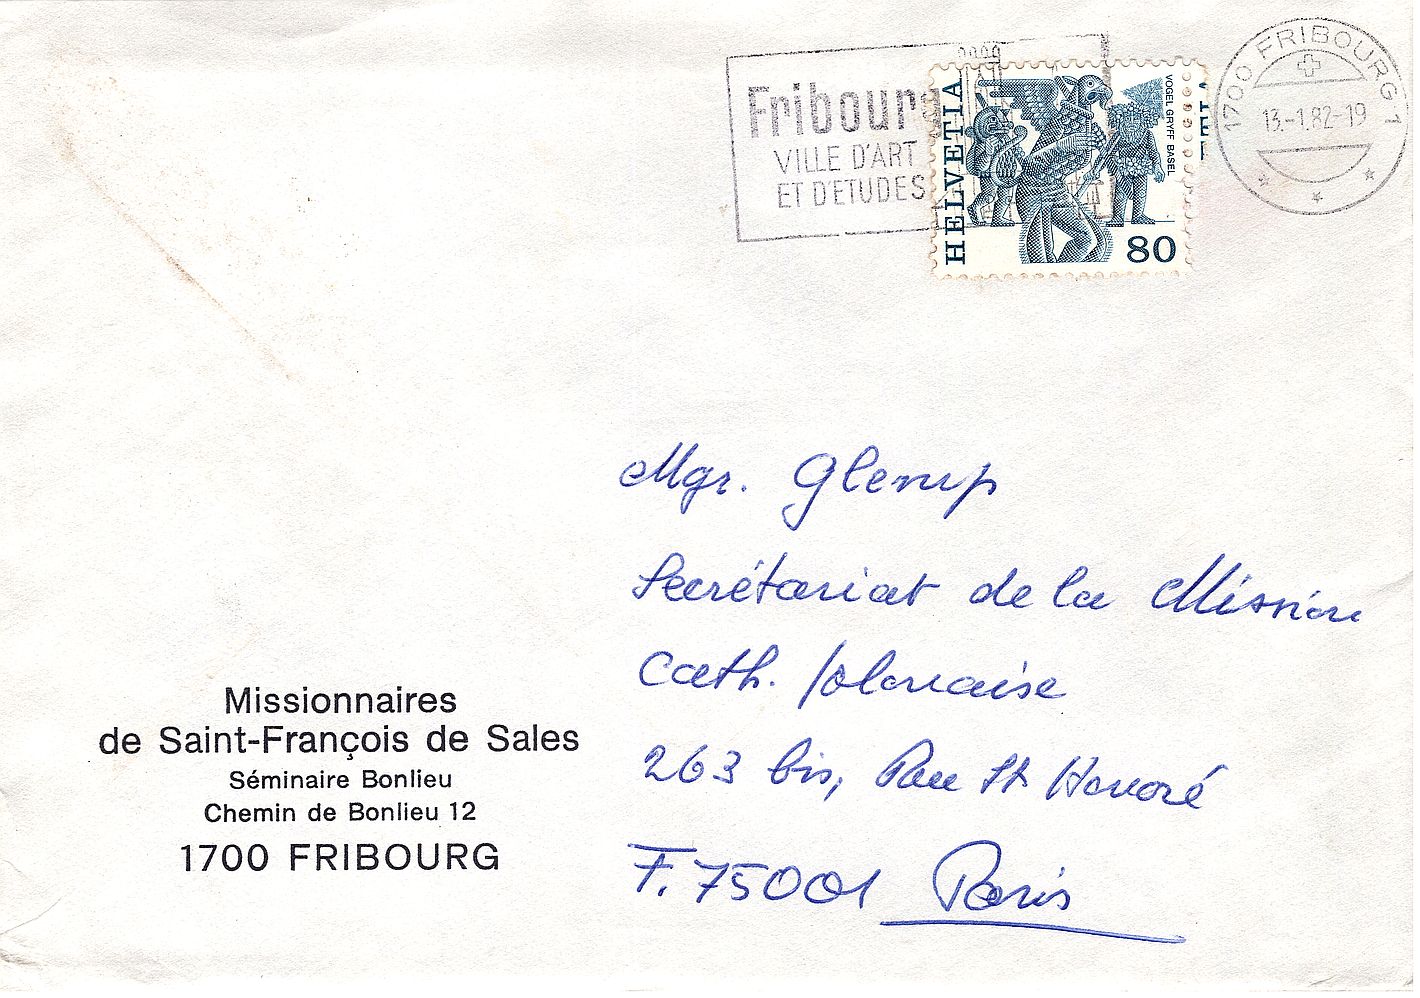 Fribourg
VILLE D'ART
ET D'ETUDES
HELVETIA
VOGEL GRYFF BASEL
80
1700 FRIBOURG 1
13.-1.82-19
Mgr. Glemp
Secrétariat de la Mission
Cath. Polonaise
263 bis, Rue St Honoré
F. 75001 Paris
Missionnaires
de Saint-François de Sales
Séminaire Bonlieu
Chemin de Bonlieu 12
1700 FRIBOURG